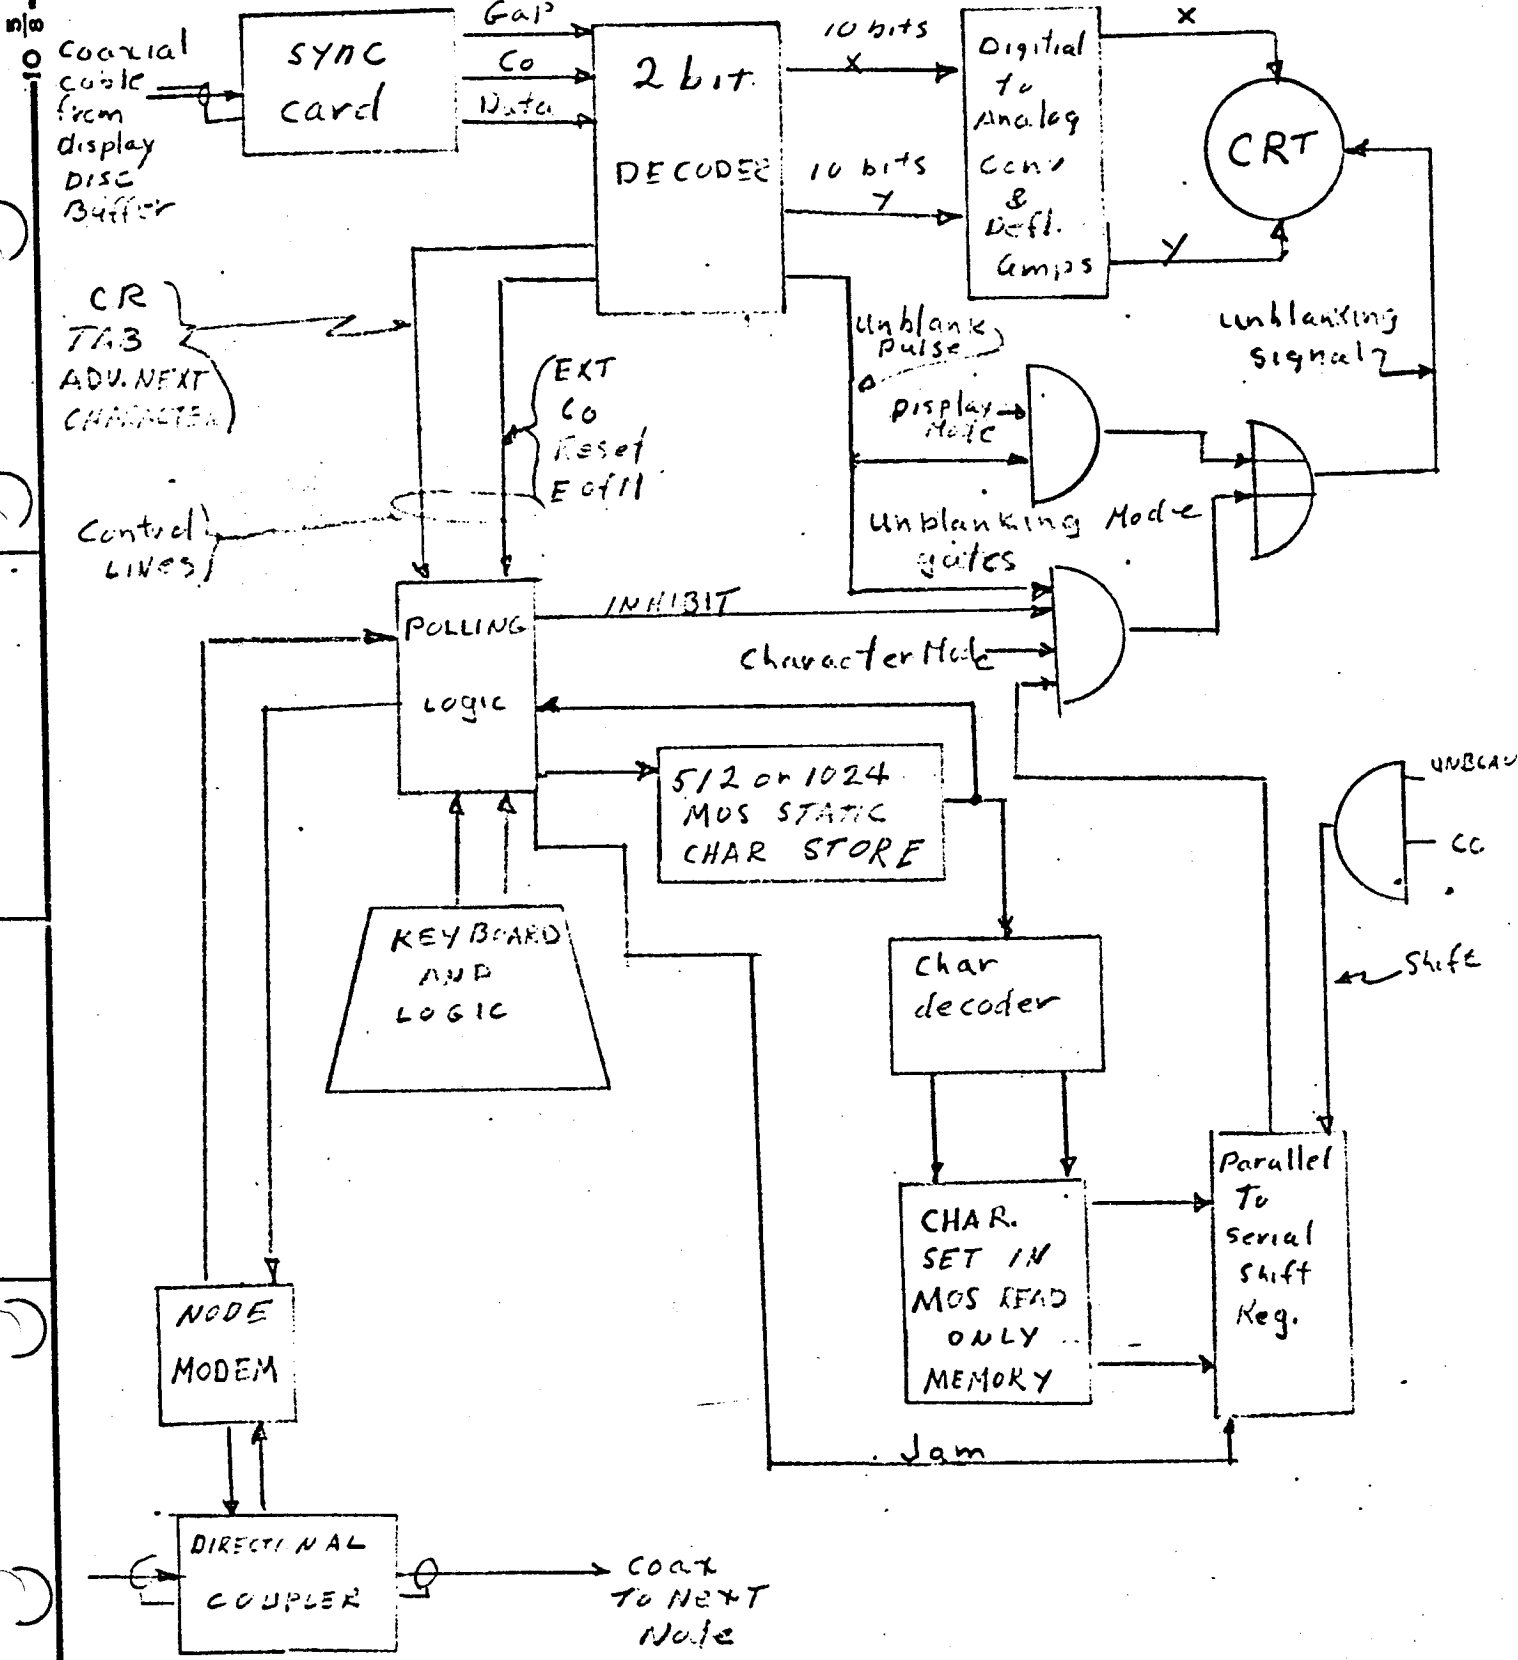 10
Coaxial
cable
from
display
DISC
Buffer
SYNC
card
Gap
Co
Data
2 bit
DECODER
10 bits
X
10 bits
Y
Digitial
to
Analog
Conv
&
Defl.
Amps
X
Y
CRT
CR
TAB
ADV. NEXT
CHARACTER
EXT
Co
Reset
Control
LINES
Unblank
pulse
Display
Mode
Unblanking
signal
Unblanking Mode
gates
POLLING
LOGIC
INHIBIT
Character Mode
512 or 1024
MOS STATIC
CHAR STORE
UNBLAN
CC
Shift
KEYBOARD
AND
LOGIC
Char
decoder
CHAR.
SET IN
MOS READ
ONLY
MEMORY
Parallel
To
Serial
Shift
Reg.
Jam
NODE
MODEM
DIRECTIONAL
COUPLER
COAX
TO NEXT
Node